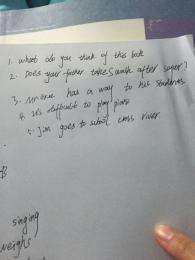 1. what do you think of this book
2. Does your father take a walk after super?
3. Mr one has a way to his students
4. It's difficult to play piano
5. Jim goes to school cross river
singing
weighs